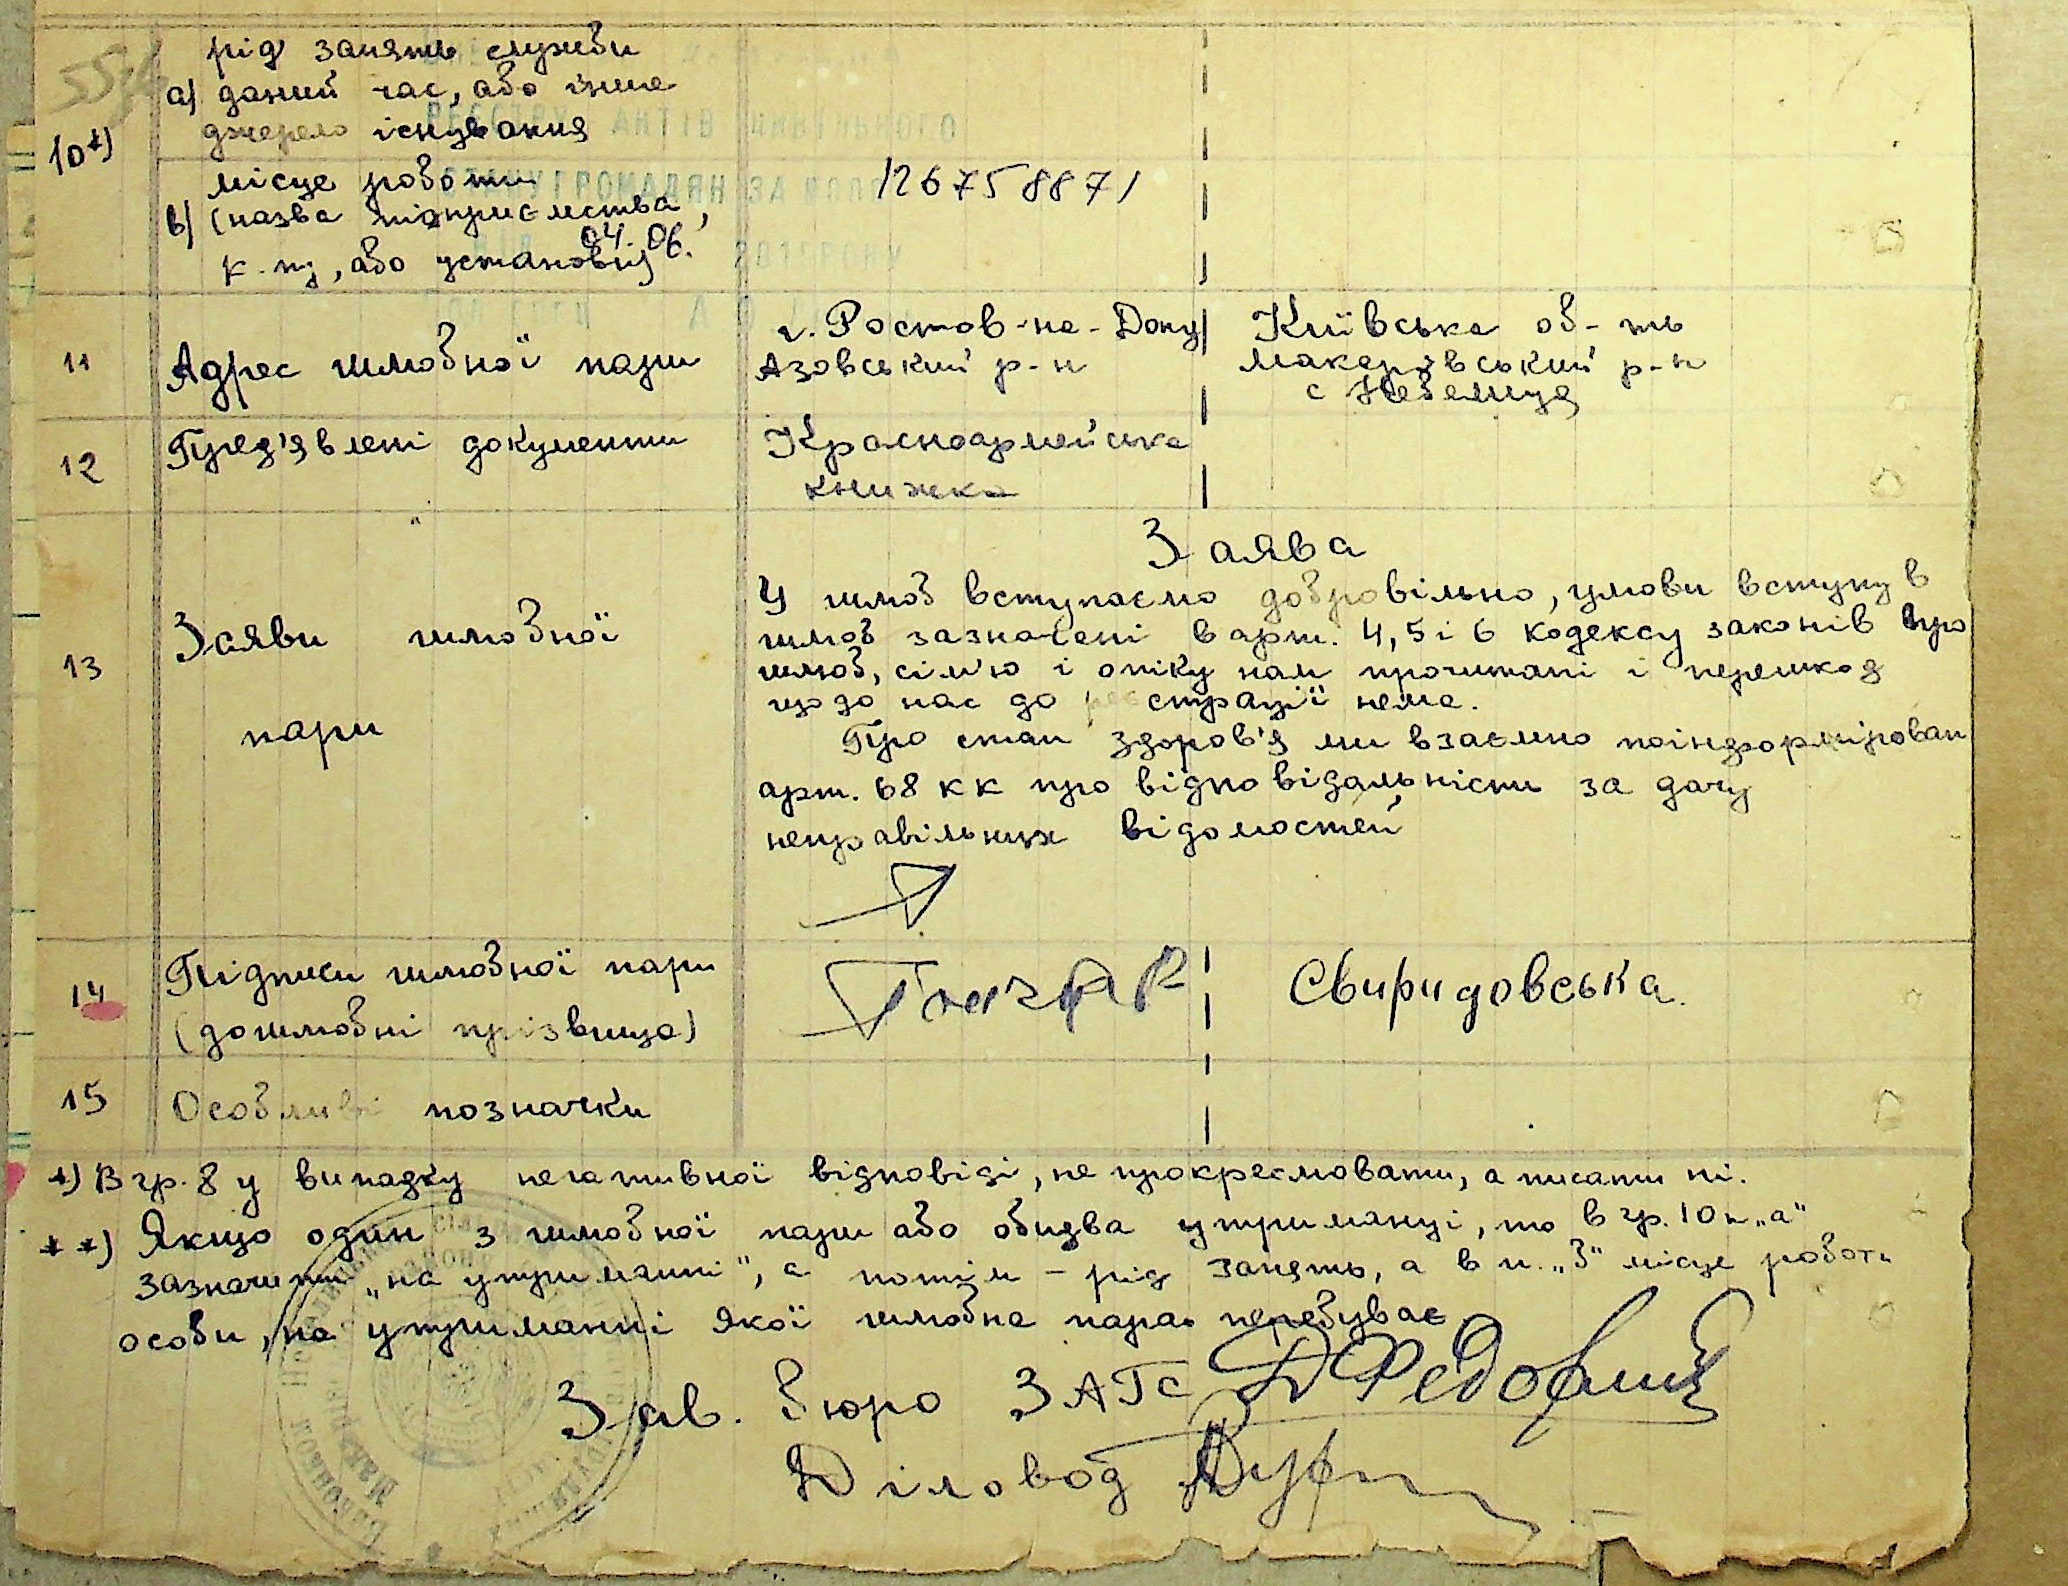 рід занять служби
а) даний час, або інше
джерело існування
10*)
місце роботи
в) (назва підприємства,
к-пу, або установи)
04. 06.
126758871
11 Адрес шлюбної пари
г. Ростов-на-Дону
Азовський р-н
Київська об-ть
Макарівський р-н
с Небелиця
12 Пред'явлені документи
Красноармейська
книжка
13 Заяви шлюбної
пари
Заява
У шлюб вступаємо добровільно, умови вступу в
шлюб зазначені в арт. 4, 5 і 6 кодексу законів про
шлюб, сім'ю і опіку нам прочитані і перешкод
що до нас до реєстрації нема.
Про стан здоров'я ми взаємно поінформірован
арт. 68 КК про відповідальність за дачу
неправільних відомостей
14 Підписи шлюбної пари
(дошлюбні прізвища)
Свиридовська.
15 Особливі позначки
*) В гр. 8 у випадку негативної відповіді, не прокреслювати, а писати ні.
**) Якщо один з шлюбної пари або обидва утриманці, то в гр. 10 п „а"
зазначити „на утриманні", а потім - рід занять, а в п. „б" місце роботи
особи, на утриманні якої шлюбна пара перебуває
Зав. бюро ЗАГС
Діловод